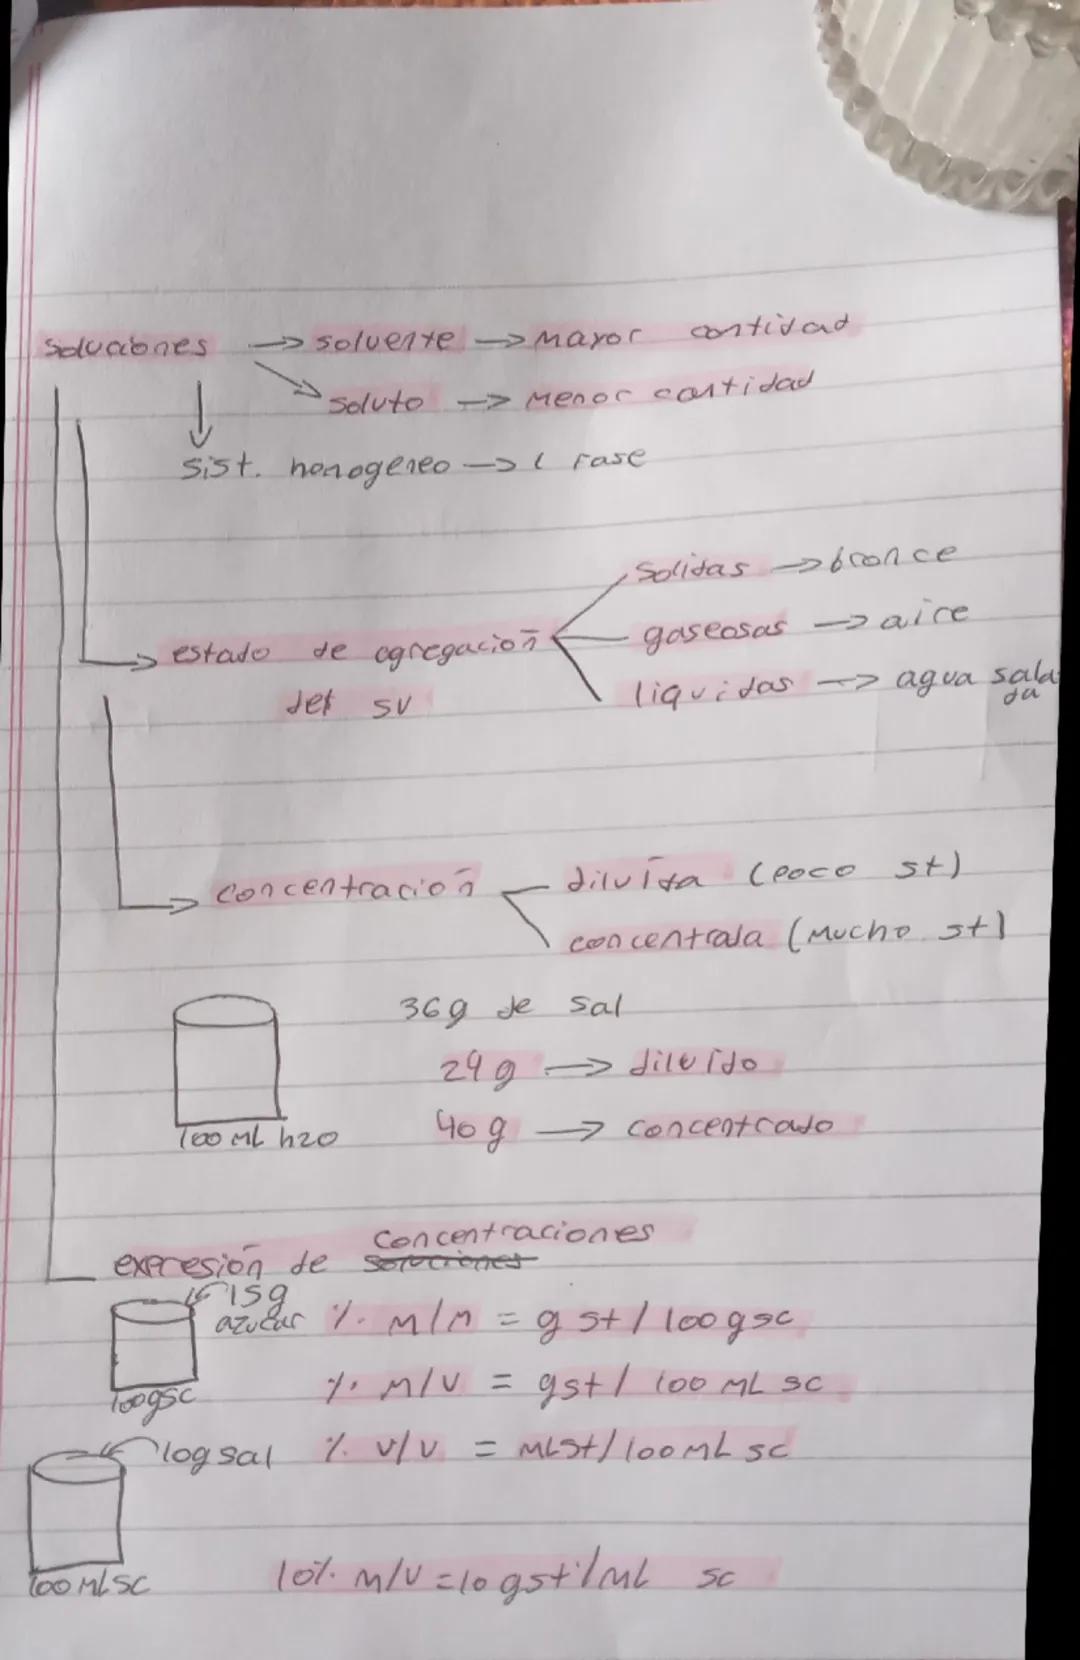 soluciones → solvente → mayor cantidad
soluto → menor cantidad
sist. homogeneo → 1 fase
solidas → bronce
gaseosas → aire
estado de agregación
del sv
liquidas → agua sala
da
concentración
diluída (poco st)
concentrada (mucho st)
36g de sal
29g → diluído
40g → concentrado
100 mL h2o
concentraciones
expresión de soluciones
15g
azucar
% m/m = g st / 100 g sc
100gsc
% m/v = gst / 100 mL sc
10g sal
% v/v = mLst/100mL sc
100 mLsc
10% m/v = 10 gst/mL sc